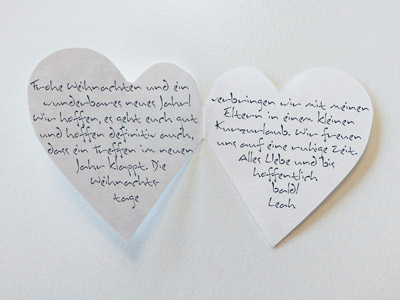 Frohe Weihnachten und ein
wunderbares neues Jahr!
Wir hoffen, es geht euch gut
und hoffen definitiv auch,
dass ein Treffen im neuen
Jahr klappt. Die
Weihnachts-
tage
verbringen wir mit meinen
Eltern in einem kleinen
Kurzurlaub. Wir freuen
uns auf eine ruhige Zeit.
Alles Liebe und bis
hoffentlich
bald!
Leah